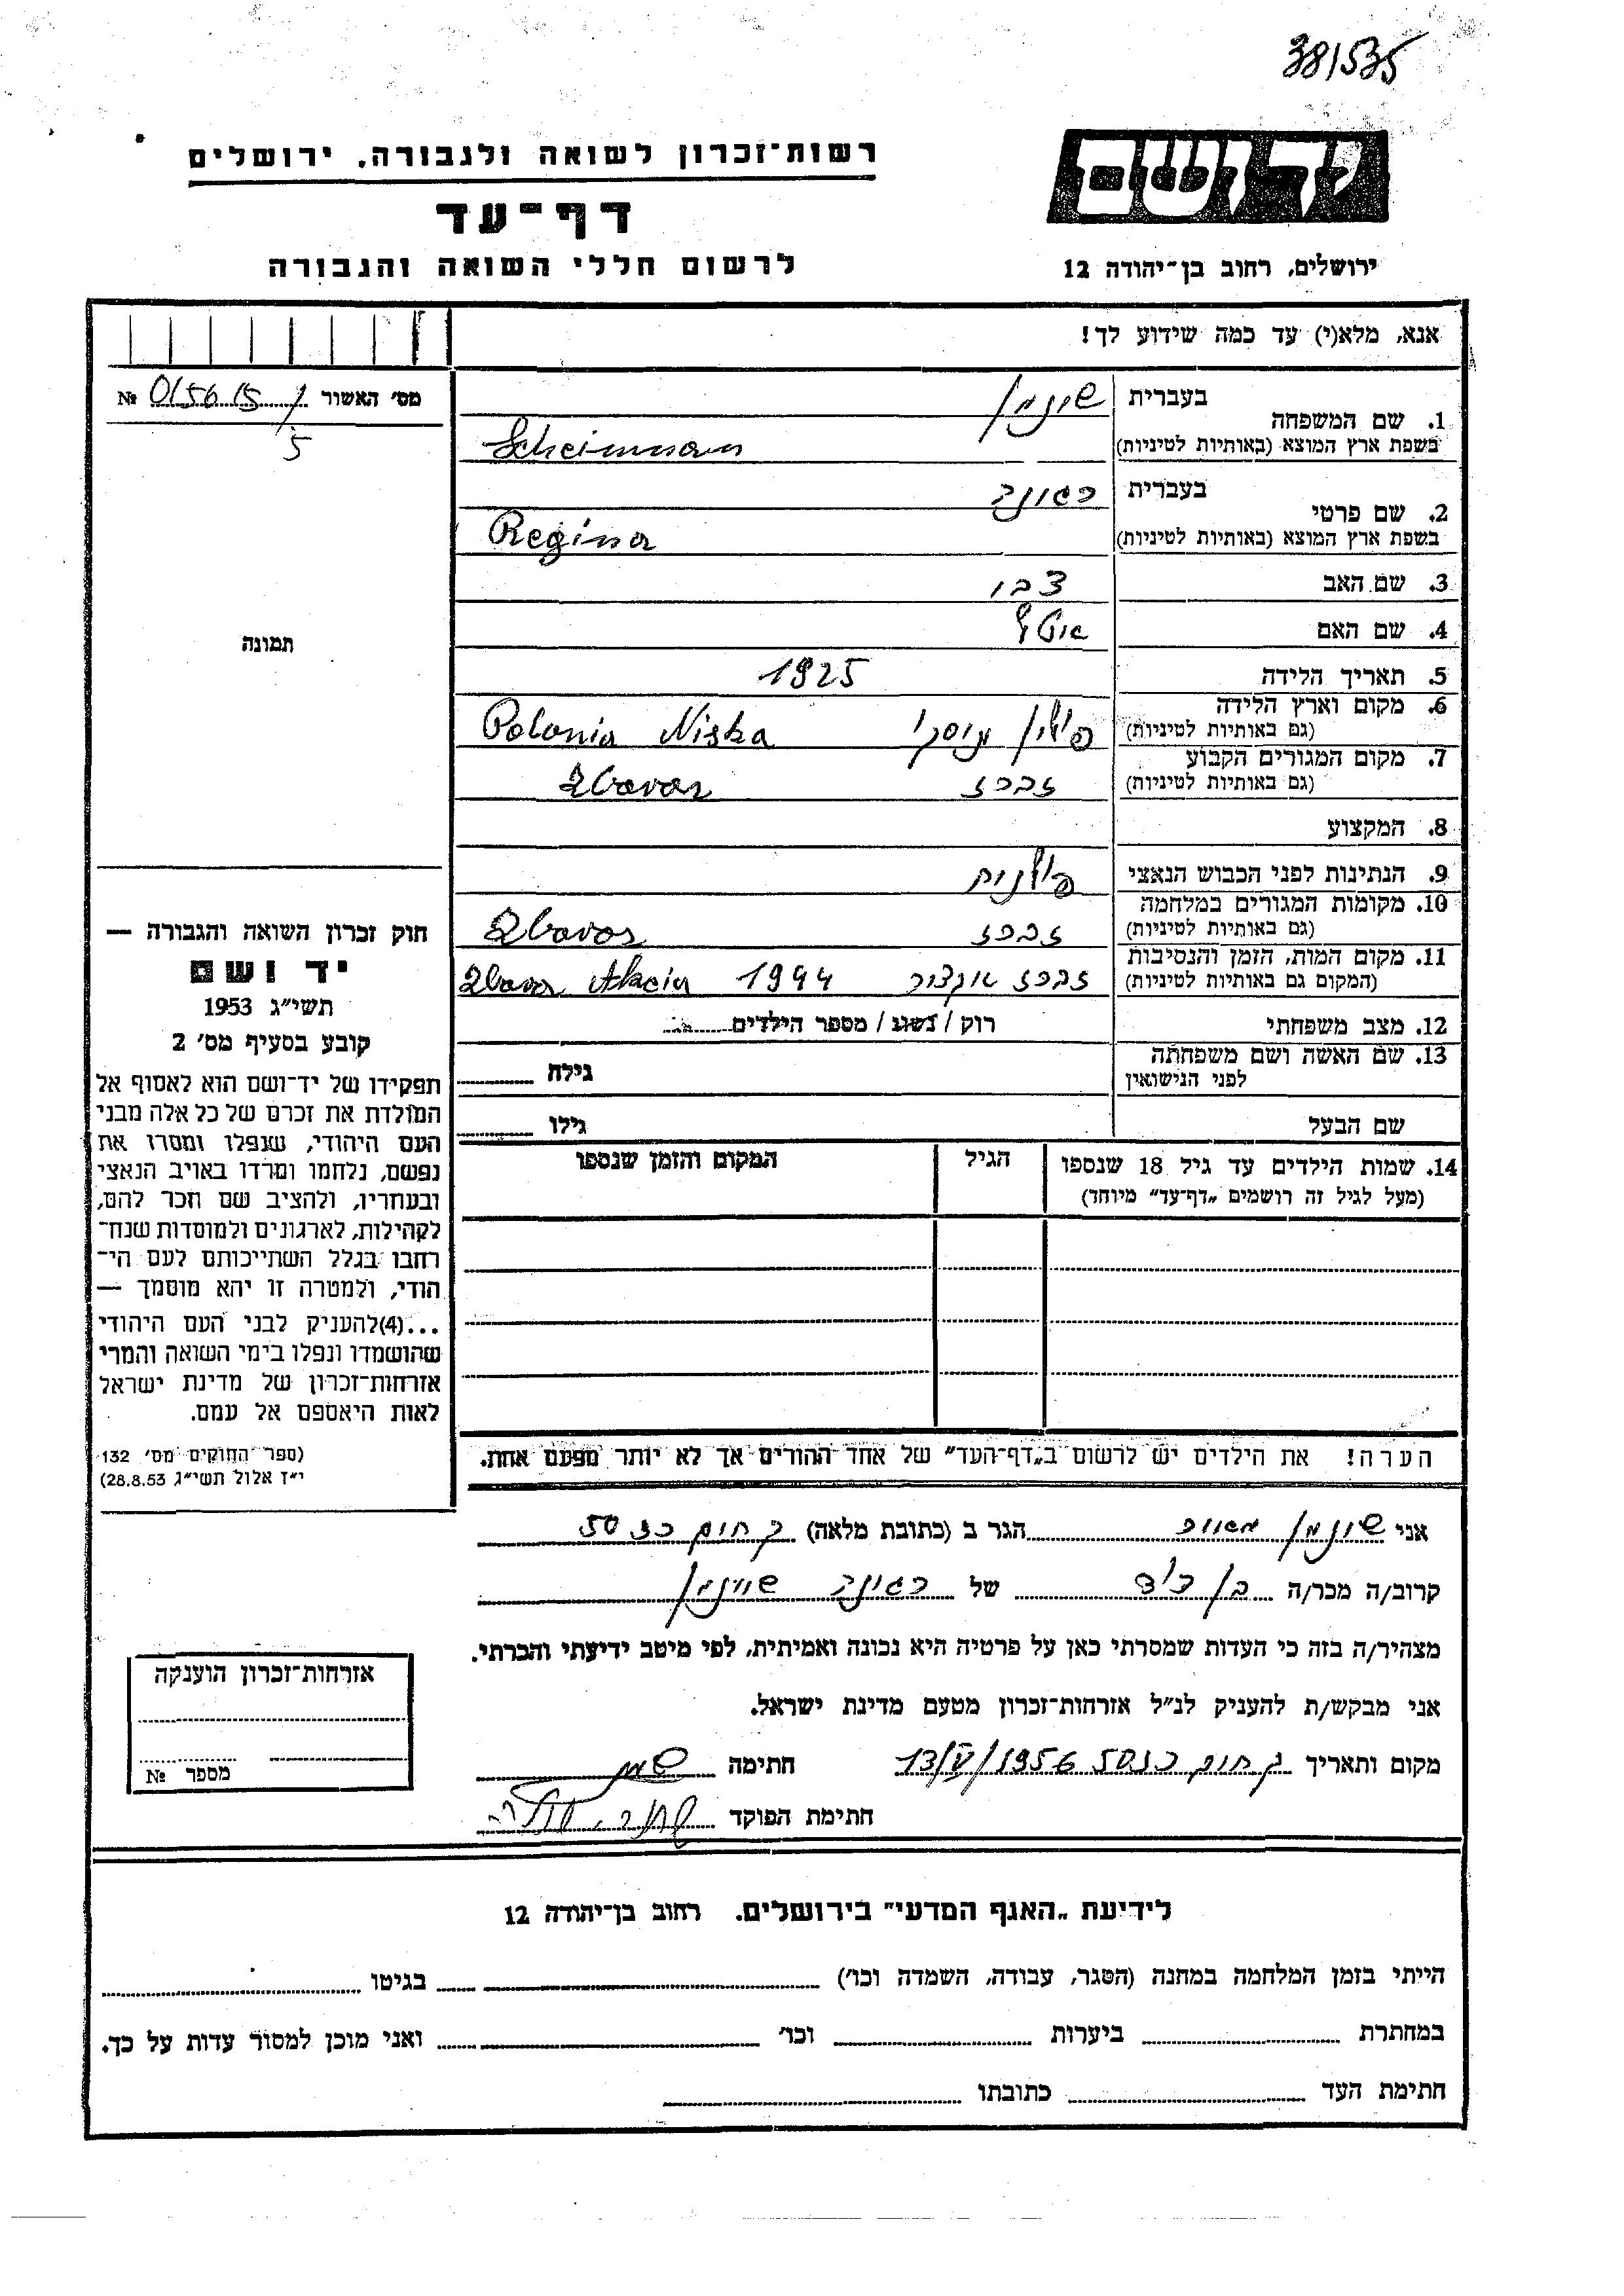 38/535
רשות־זכרון לשואה ולגבורה, ירושלים
יד ושם
דף־עד
לרשום חללי השואה והגבורה
ירושלים, רחוב בן־יהודה 12
אנא, מלא(י) עד כמה שידוע לך!
מס׳ האשור 015615/5 №
1. שם המשפחה
בעברית שינמן
בשפת ארץ המוצא (באותיות לטיניות) Scheinman
2. שם פרטי
בעברית רגינה
בשפת ארץ המוצא (באותיות לטיניות) Regina
3. שם האב צבי
4. שם האם
5. תאריך הלידה 1925
6. מקום וארץ הלידה
(גם באותיות לטיניות) פולין ניסקו Polonia Niska
7. מקום המגורים הקבוע
(גם באותיות לטיניות) זברז Zbaraz
8. המקצוע
9. הנתינות לפני הכבוש הנאצי פולנית
10. מקומות המגורים במלחמה
(גם באותיות לטיניות) זברז Zbaraz
11. מקום המות, הזמן והנסיבות
(המקום גם באותיות לטיניות) זברז אקציה 1944
12. מצב משפחתי רוק / נשוי / מספר הילדים
13. שם האשה ושם משפחתה
לפני הנישואין גילה
שם הבעל גילו
14. שמות הילדים עד גיל 18 שנספו
(מעל לגיל זה רושמים „דף־עד" מיוחד)
הגיל
המקום והזמן שנספו
הערה! את הילדים יש לרשום ב„דף־העד" של אחד ההורים אך לא יותר מפעם אחת.
תמונה
חוק זכרון השואה והגבורה —
יד ושם
תשי״ג 1953
קובע בסעיף מס׳ 2
תפקידו של יד־ושם הוא לאסוף אל
המולדת את זכרם של כל אלה מבני
העם היהודי, שנפלו ומסרו את
נפשם, נלחמו ומרדו באויב הנאצי
ובעוזריו, ולהציב שם וזכר להם,
לקהילות, לארגונים ולמוסדות שנח־
רבו בגלל השתייכותם לעם הי־
הודי, ולמטרה זו יהא מוסמך —
...(4)להעניק לבני העם היהודי
שהושמדו ונפלו בימי השואה והמרי
אזרחות־זכרון של מדינת ישראל
לאות היאספם אל עמם.
(ספר החוקים מס׳ 132
י״ז אלול תשי״ג 28.8.53)
אני שינמן מאיר הגר ב (כתובת מלאה) 50
קרוב/ה מכר/ה בן דוד של רגינה שיינמן
מצהיר/ה בזה כי העדות שמסרתי כאן על פרטיה היא נכונה ואמיתית, לפי מיטב ידיעתי והכרתי.
אני מבקש/ת להעניק לנ״ל אזרחות־זכרון מטעם מדינת ישראל.
מקום ותאריך 50 13/V/1956 חתימה
חתימת הפוקד
אזרחות־זכרון הוענקה
מספר №
לידיעת „האגף המדעי" בירושלים, רחוב בן־יהודה 12
הייתי בזמן המלחמה במחנה (הסגר, עבודה, השמדה וכו׳) בגיטו
במחתרת ביערות וכו׳ ואני מוכן למסור עדות על כך.
חתימת העד כתובתו